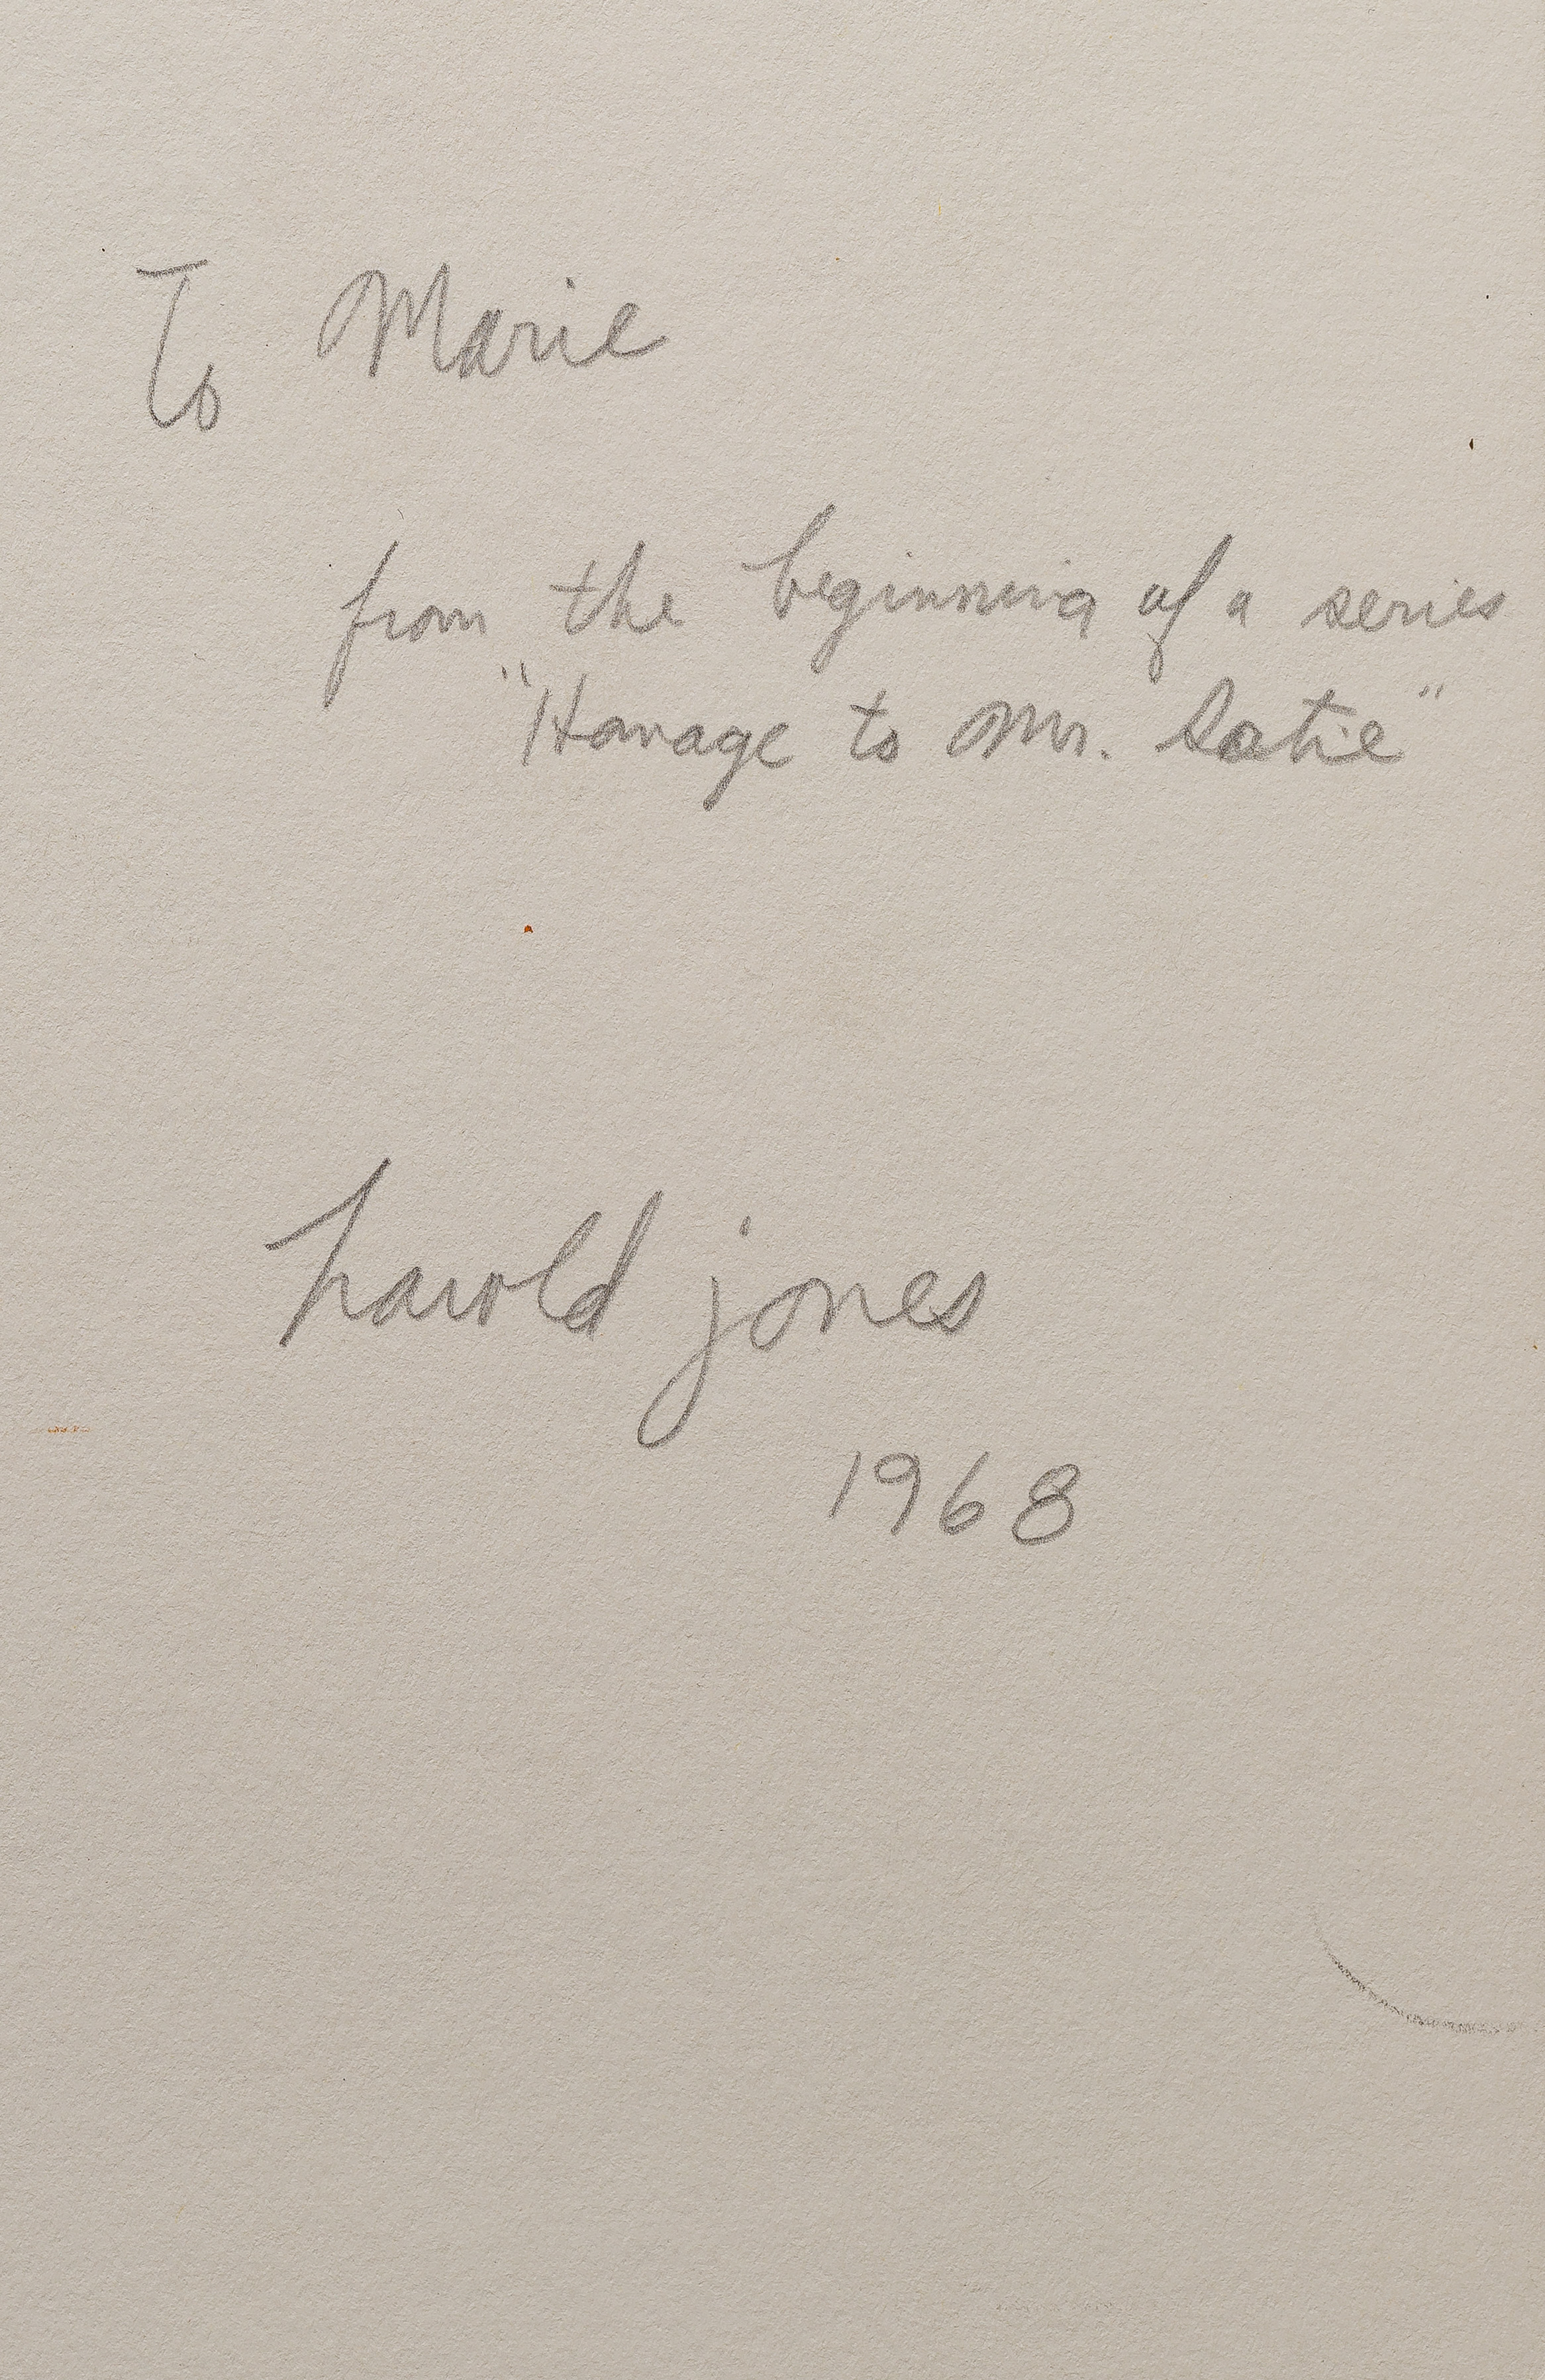 To Marie
from the beginning of a series
"Homage to Mr. Satie"
harold jones
1968